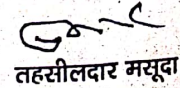 तहसीलदार मसूदा